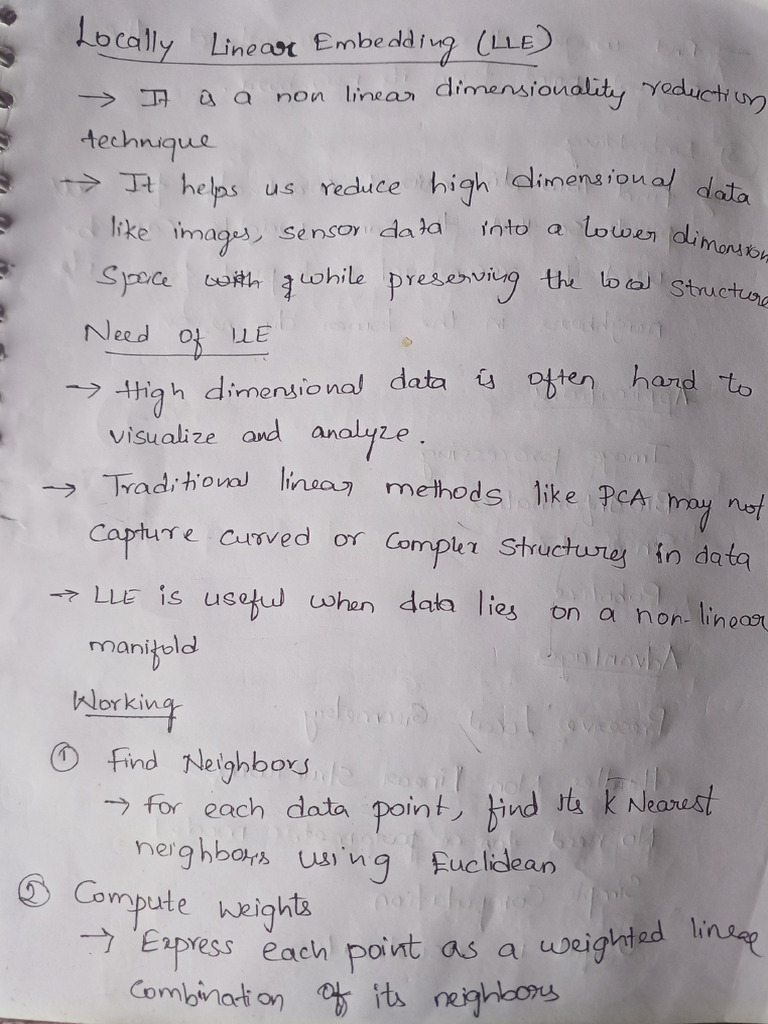 Locally Linear Embedding (LLE)
→ It is a non linear dimensionality reduction
technique
→ It helps us reduce high dimensional data
like images, sensor data into a lower dimension
Space with while preserving the local structure
Need of LLE
→ High dimensional data is often hard to
visualize and analyze.
→ Traditional linear methods like PCA may not
Capture curved or complex structures in data
→ LLE is useful when data lies on a non-linear
manifold
Working
① Find Neighbors
→ for each data point, find its K Nearest
neighbors using Euclidean
② Compute weights
→ Express each point as a weighted linear
Combination of its neighbors